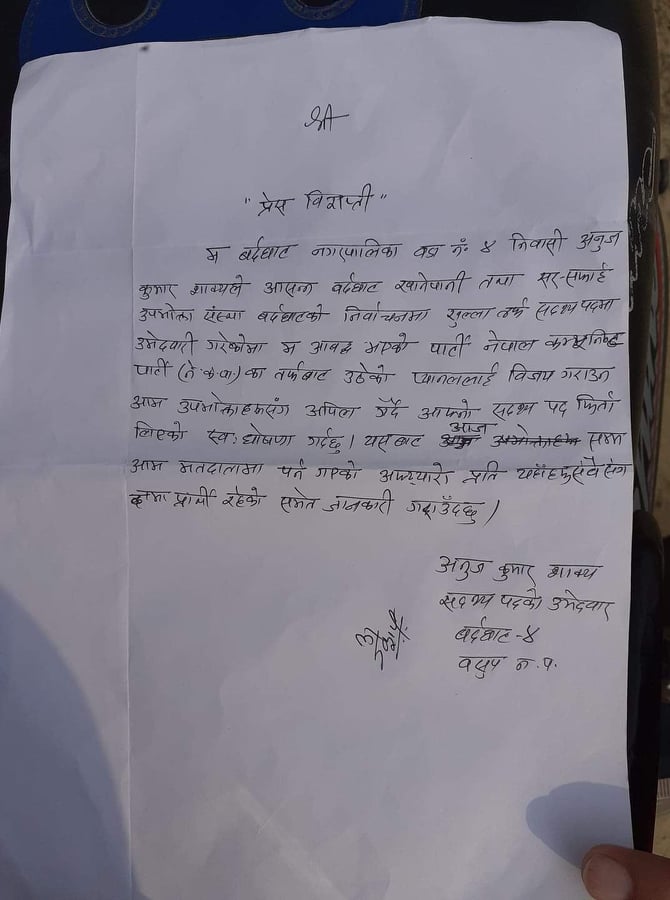 श्री
"प्रेस विज्ञप्ती"
म बर्दघाट नगरपालिका वडा नं. ४ निवासी अनुज
कुमार शाक्यले आसन्न बर्दघाट खानेपानी तथा सर-सफाई
उपभोक्ता संस्था बर्दघाटको निर्वाचनमा खुल्ला तर्फ सदस्य पदमा
उमेदवारी गरेकोमा म आवद्ध भएको पार्टी नेपाल कम्यूनिष्ट
पार्टी (ने.क.पा.) का तर्फबाट उठेको प्यानललाई विजय गराउन
आम उपभोक्ताहरुसंग अपिल गर्दै आफ्नो सदस्य पद फिर्ता
लिएको स्व: घोषणा गर्दछु। यसबाट आज सम्म
आम मतदातामा पर्न गएको अप्ठ्यारो प्रति यहाँहरु सवै संग
क्षमा प्रार्थी रहेको समेत जानकारी गराउँदछु।
अनुज कुमार शाक्य
सदस्य पदको उमेदवार
बर्दघाट-४
न.प.